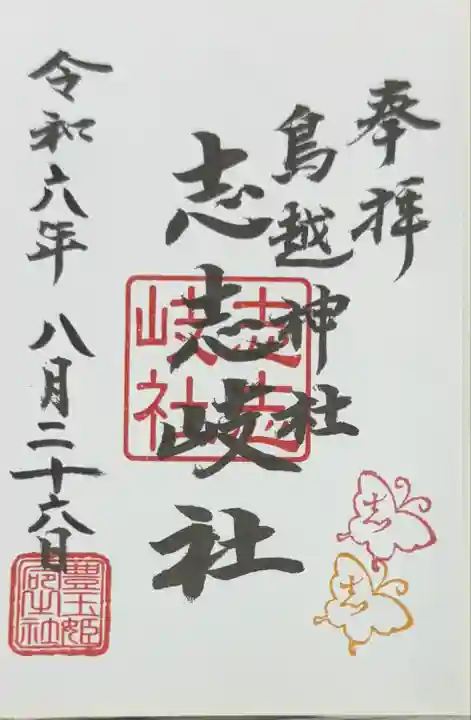 奉拝
鳥越神社
志志岐社
志志岐社
令和六年 八月二十六日
豊玉姫
志
志